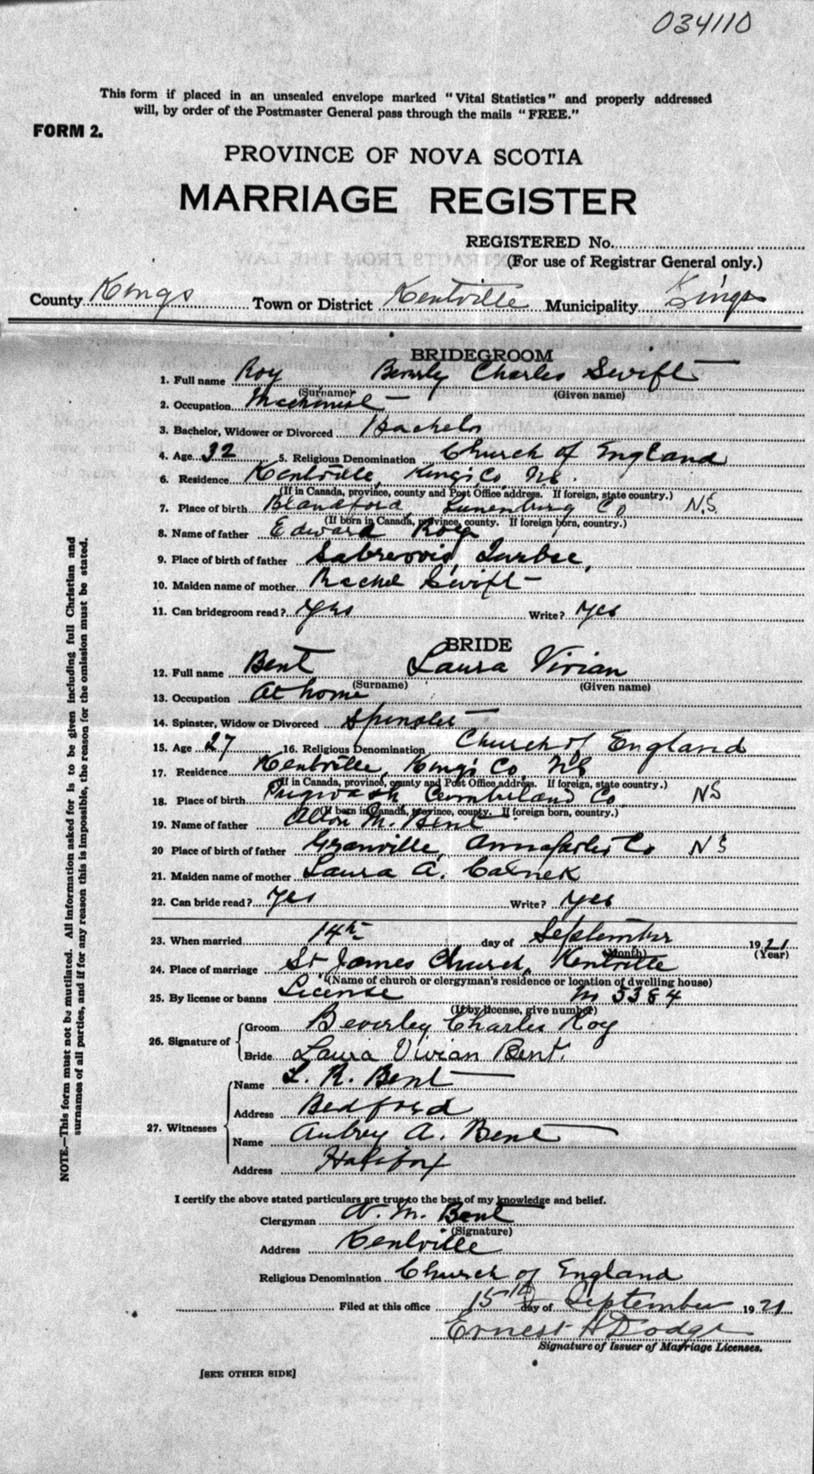 034110
This form if placed in an unsealed envelope marked "Vital Statistics" and properly addressed
will, by order of the Postmaster General pass through the mails "FREE."
FORM 2.
PROVINCE OF NOVA SCOTIA
MARRIAGE REGISTER
REGISTERED No.
(For use of Registrar General only.)
County Kings Town or District Kentville Municipality Kings
BRIDEGROOM
1. Full name Roy Beverly Charles Swift
(Surname) (Given name)
2. Occupation Machinist
3. Bachelor, Widower or Divorced Bachelor
4. Age 32 5. Religious Denomination Church of England
6. Residence Kentville, Kings Co, NS.
(If in Canada, province, county and Post Office address. If foreign, state country.)
7. Place of birth Blandford, Lunenburg Co N.S
(If born in Canada, province, county. If foreign born, country.)
8. Name of father Edward Roy
9. Place of birth of father
10. Maiden name of mother Rachel Swift
11. Can bridegroom read? Yes Write? Yes
BRIDE
12. Full name Bent Laura Vivian
(Surname) (Given name)
13. Occupation At home
14. Spinster, Widow or Divorced Spinster
15. Age 27 16. Religious Denomination Church of England
17. Residence Kentville, Kings Co, NS
(If in Canada, province, county and Post Office address. If foreign, state country.)
18. Place of birth Pugwash Cumberland Co. NS
(If born in Canada, province, county. If foreign born, country.)
19. Name of father M. Bent
20 Place of birth of father Granville, Annapolis Co NS
21. Maiden name of mother Laura A.
22. Can bride read? Yes Write? Yes
23. When married 14th day of September 1921
(Month) (Year)
24. Place of marriage St James Church, Kentville
(Name of church or clergyman's residence or location of dwelling house)
25. By license or banns License M 5384
(If by license, give number)
26. Signature of Groom Beverley Charles Roy
Bride Laura Vivian Bent.
27. Witnesses
Name L. R. Bent
Address Bedford
Name Aubrey A. Bent
Address Halifax
I certify the above stated particulars are true to the best of my knowledge and belief.
Clergyman M. Bent
(Signature)
Address Kentville
Religious Denomination Church of England
Filed at this office 15th day of September 1921
Ernest H Dodge
Signature of Issuer of Marriage Licenses.
[SEE OTHER SIDE]
NOTE.—This form must not be mutilated. All information asked for is to be given including full Christian and
surnames of all parties, and if for any reason this is impossible, the reason for the omission must be stated.